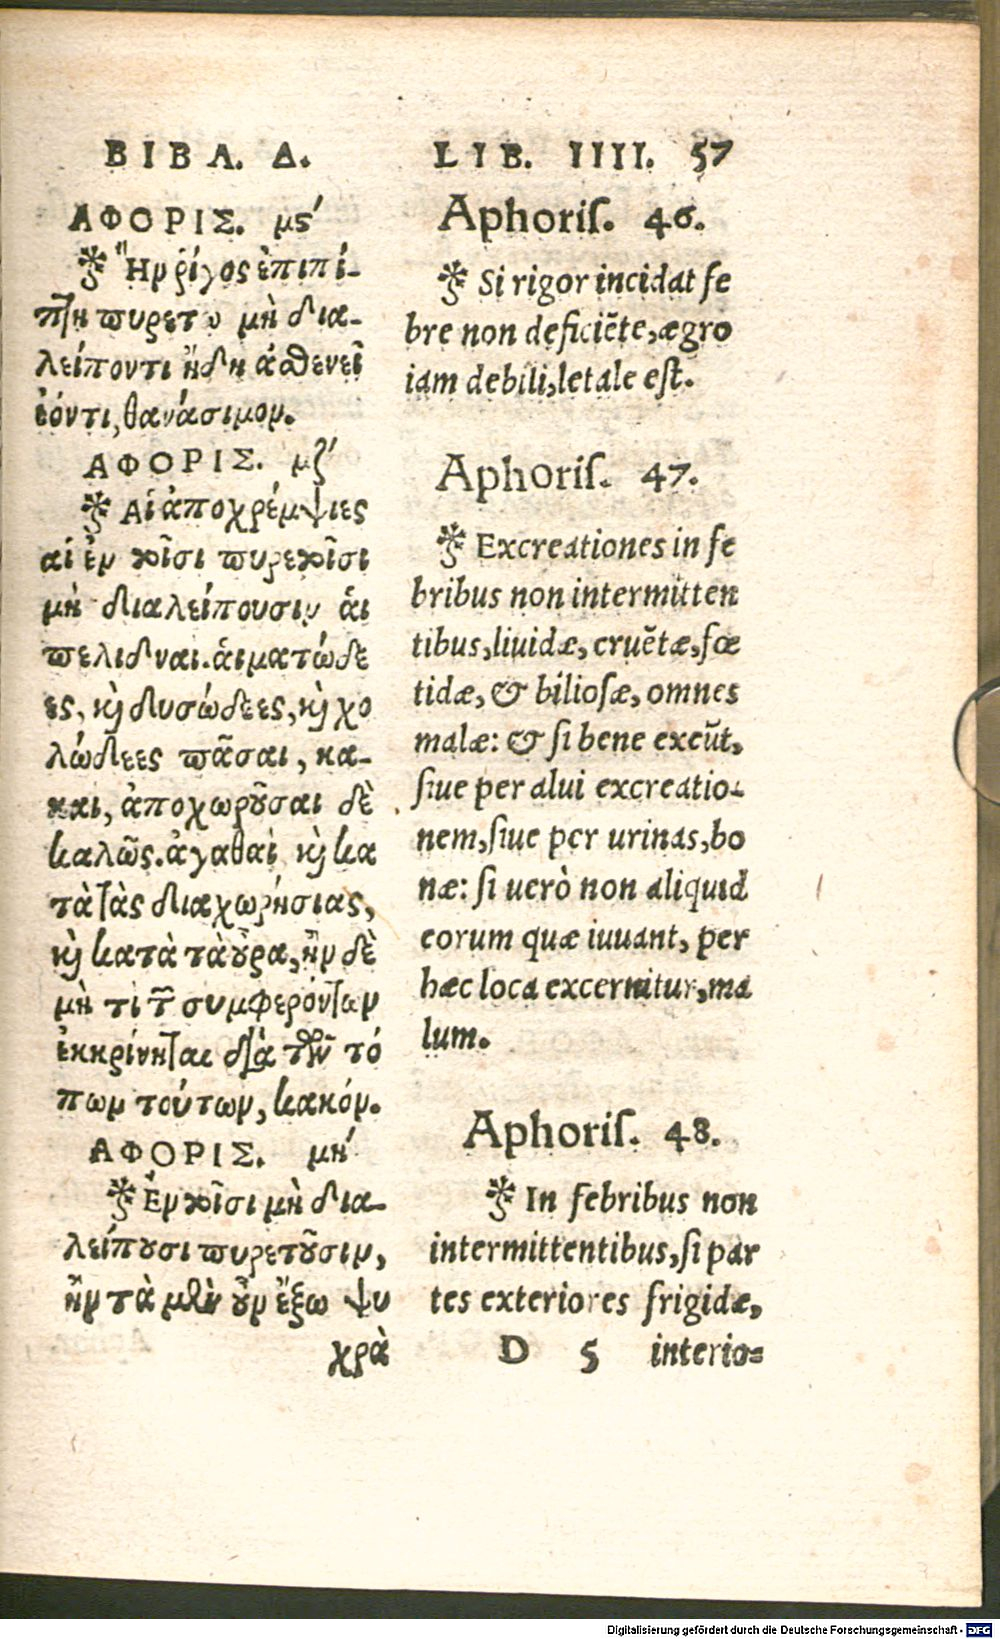 ΒΙΒΛ. Δ.
ΑΦΟΡΙΣ. μϛʹ
Ἢν ῥίγος ἐπιπί-
πτῃ πυρετῳ μὴ δια-
λείποντι ἤδη ἀσθενεῖ
ἐόντι, θανάσιμον.
ΑΦΟΡΙΣ. μζʹ
Αἱ ἀποχρέμψιες
αἱ ἐν τοῖσι πυρετοῖσι
μὴ διαλείπουσιν ἁι
πελιδναι. ἁιματώδε
ες, κỳ δυσώδεες, κỳ χο
λώδεες πᾶσαι, κα-
και, ἀποχωροῦσαι δὲ
καλῶς. ἀγαθαὶ κỳ κα
τὰ τὰς διαχωρήσιας,
κỳ κατὰ τὰ οὖρα, ἢν δὲ
μὴ τὶ τ̃ συμφερόντων
ἐκκρίνηται διὰ τῶν τό
πων τούτων, κακόν.
ΑΦΟΡΙΣ. μηʹ
Ἐν τοῖσι μὴ δια-
λείπουσι πυρετοῦσιν,
ἢν τὰ μὲν οὖν ἔξω ψυ
χρὰ
LIB. IIII. 57
Aphoriſ. 46.
Si rigor incidat fe
bre non deficiẽte, ægro
iam debili, letale eſt.
Aphoriſ. 47.
Excreationes in fe
bribus non intermitten
tibus, liuidæ, cruẽtæ, fœ
tidæ, & bilioſæ, omnes
malæ: & ſi bene exeũt,
ſiue per alui excreatio-
nem, ſiue per urinas, bo
næ: ſi uerò non aliquid
eorum quæ iuuant, per
hæc loca excernitur, ma
lum.
Aphoriſ. 48.
In febribus non
intermittentibus, ſi par
tes exteriores frigidæ,
D 5 interio-
Digitalisierung gefördert durch die Deutsche Forschungsgemeinschaft - DFG